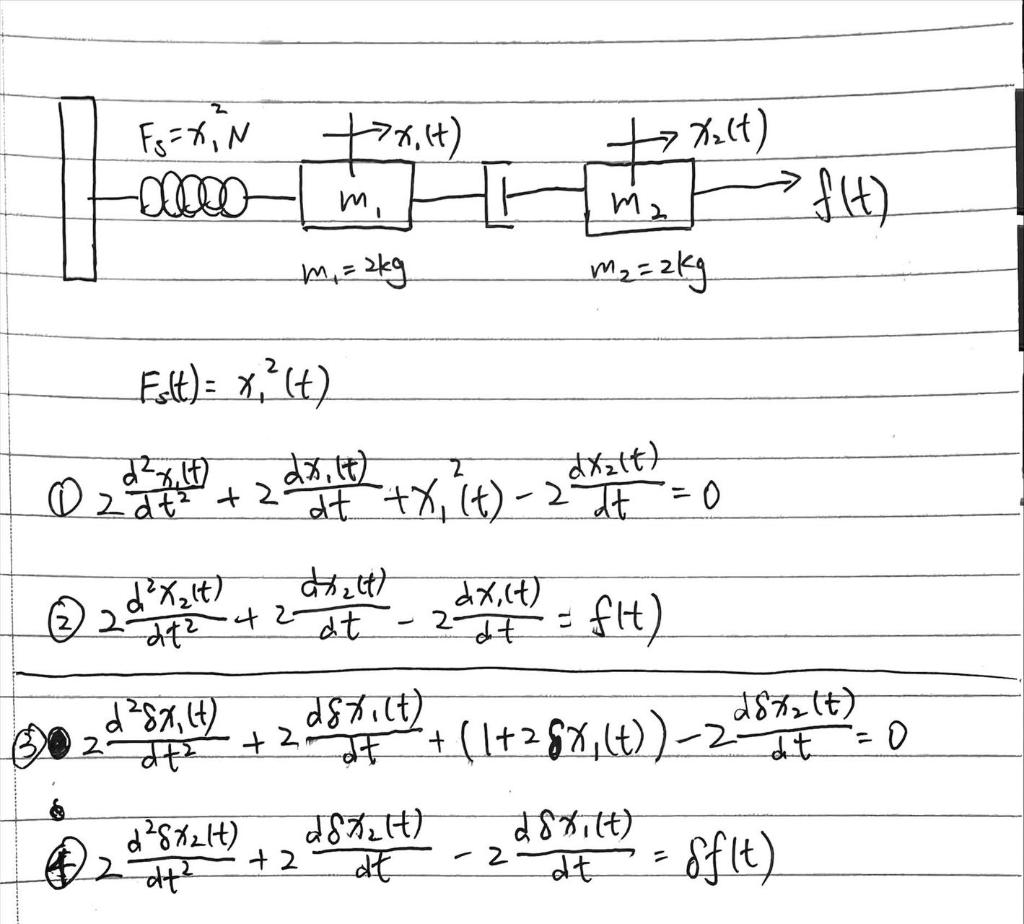 Fs=x₁² N → x₁(t) → x₂(t)
m₁ m₂ → f(t)
m₁=2kg m₂=2kg
Fs(t)= x₁²(t)
① 2 d²x₁(t)/dt² + 2 dx₁(t)/dt + x₁²(t) - 2 dx₂(t)/dt = 0
② 2 d²x₂(t)/dt² + 2 dx₂(t)/dt - 2 dx₁(t)/dt = f(t)
③ 2 d²δx₁(t)/dt² + 2 dδx₁(t)/dt + (1+2δx₁(t)) - 2 dδx₂(t)/dt = 0
④ 2 d²δx₂(t)/dt² + 2 dδx₂(t)/dt - 2 dδx₁(t)/dt = δf(t)